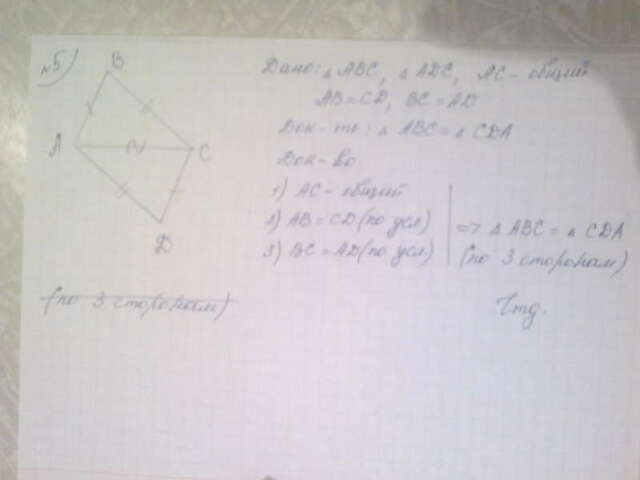 №5
B
A
C
D
Дано: △ ABC, △ ADC, AC - общий
AB = CD, BC = AD
Док-ть: △ ABC = △ CDA
Док-во
1) AC - общий
2) AB = CD (по усл)
3) BC = AD (по усл)
=> △ ABC = △ CDA
(по 3 сторонам)
(по 3 сторонам)
Чтд.